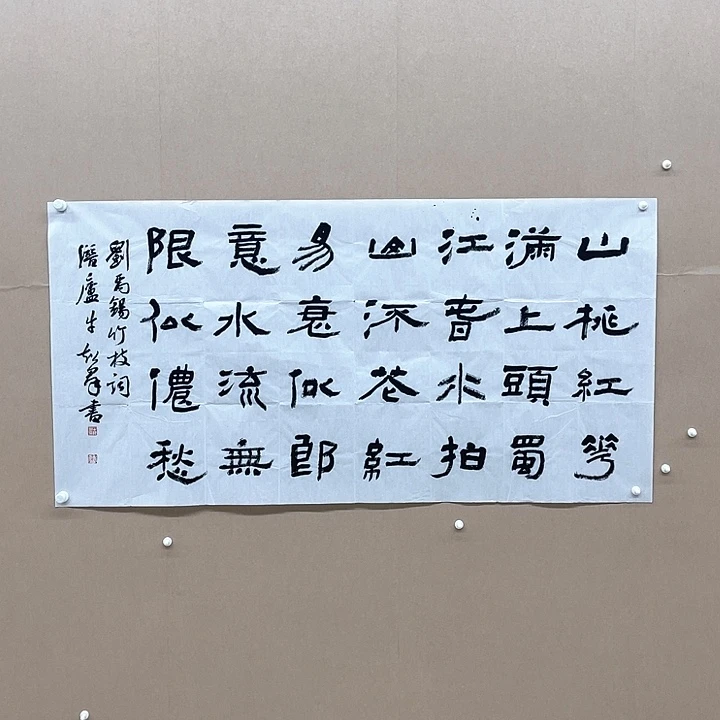 山桃紅華
滿上頭蜀
江春水拍
山流花紅
易衰似郎
意水流無
限似儂愁
劉禹錫竹枝詞
廬牛書